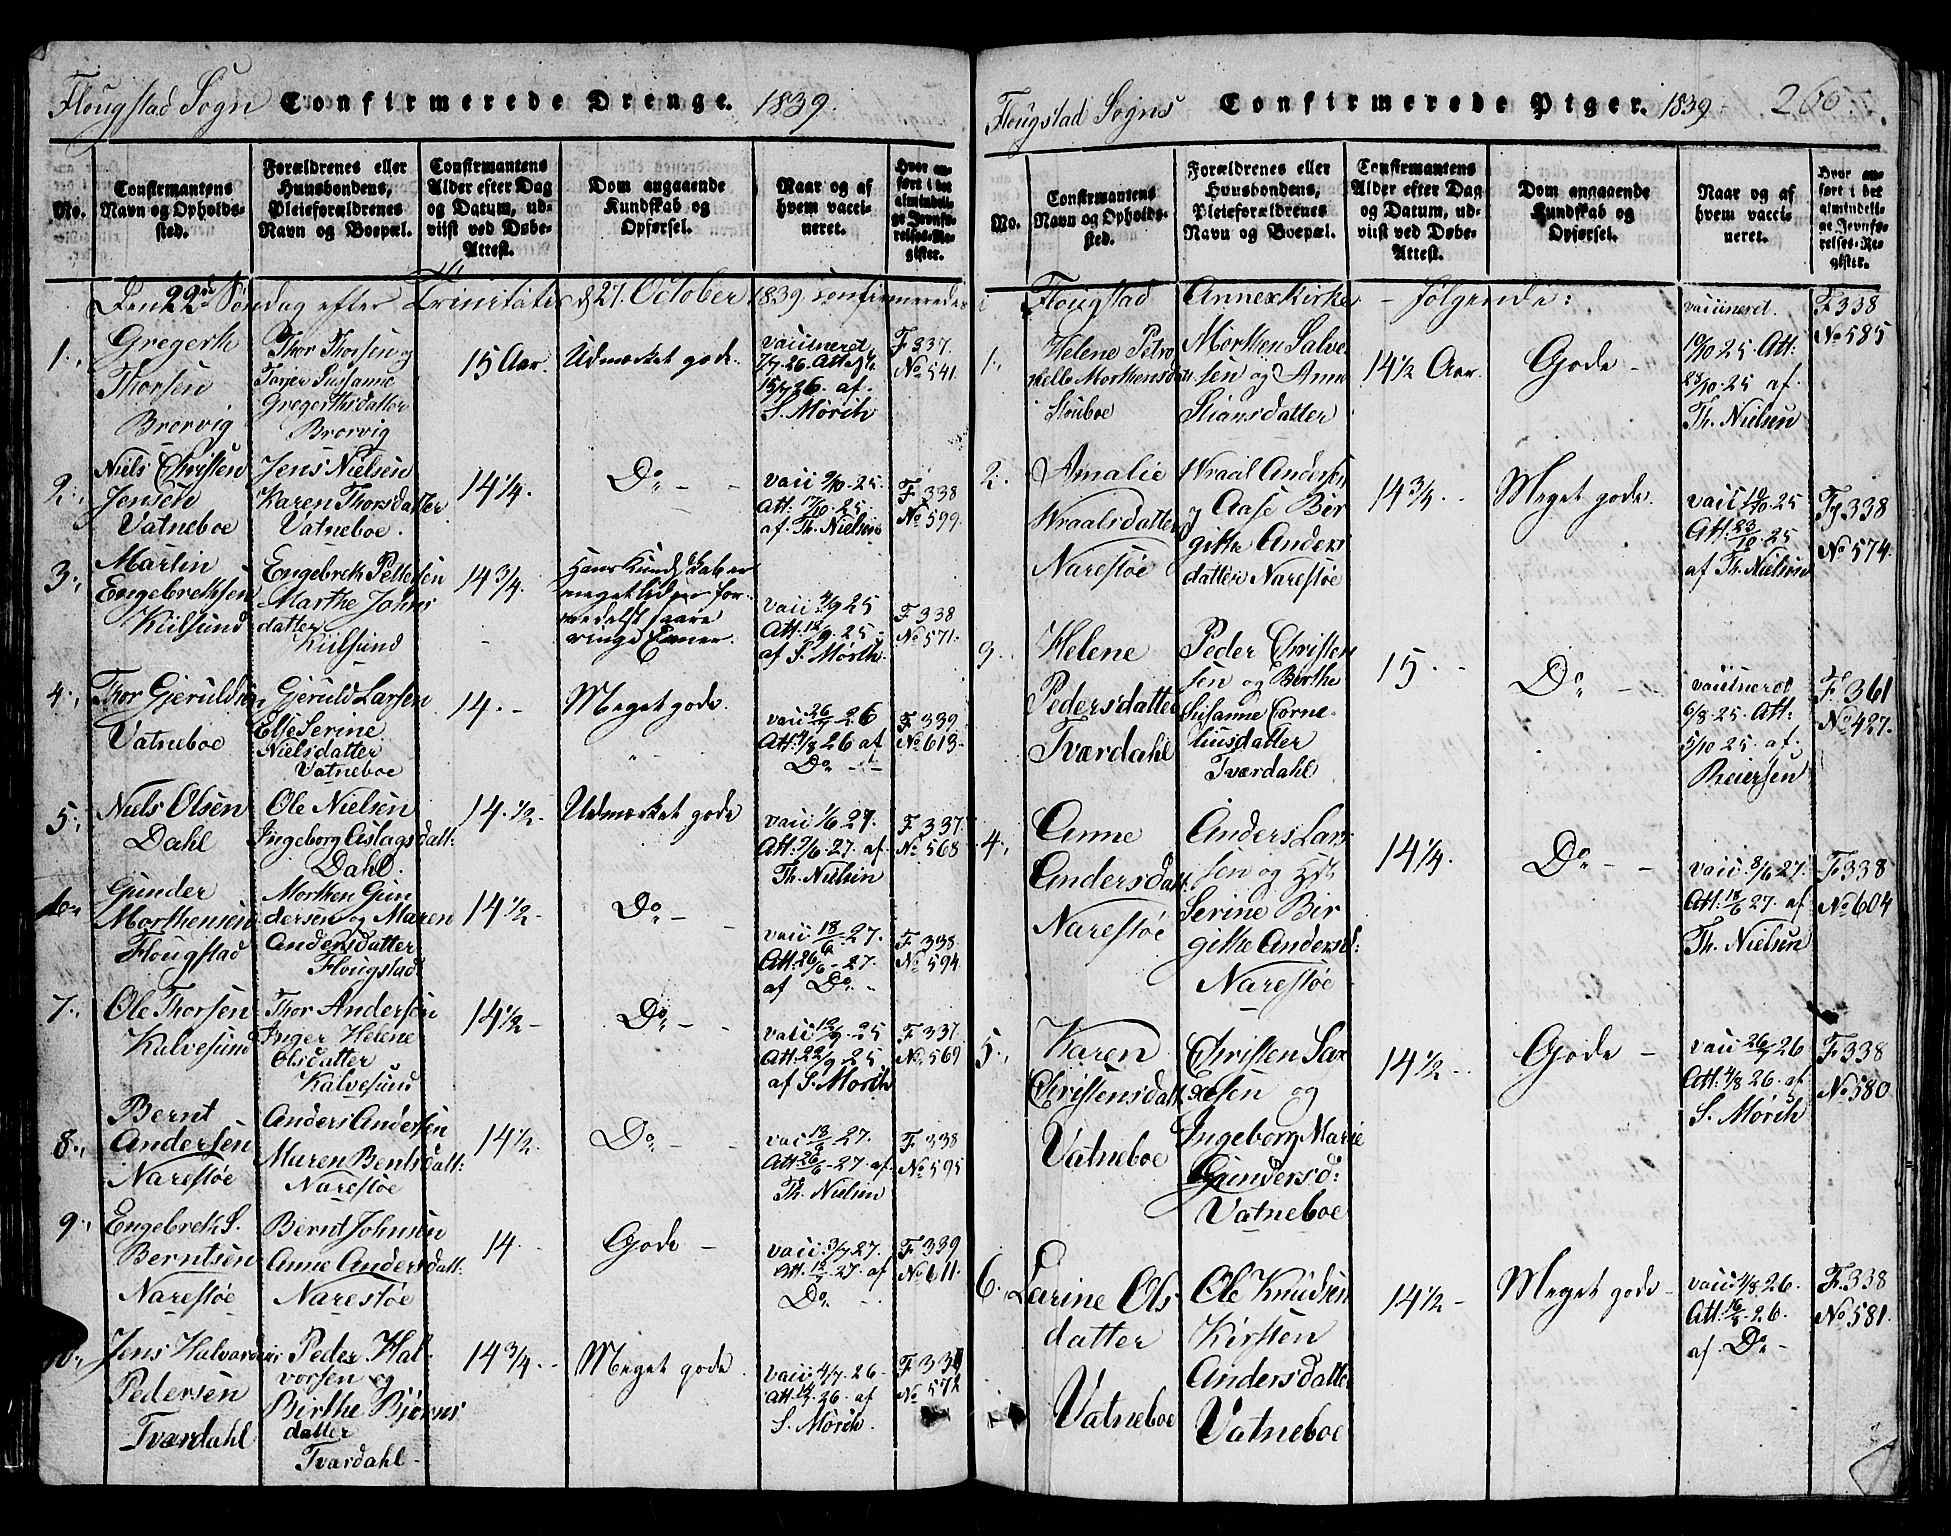 Flougstad Sogn Confirmerede Drenge. 1839.
No.
Confirmantens Navn og Opholds-sted.
Forældrenes eller Huusbondens, Pleieforældrenes Navn og Boepæl.
Confirmantens Alder efter Dag og Datum, ud-viist ved Døbe-Attest.
Dom angaaende Kundskab og Opførsel.
Naar og af hvem vacci-neret.
Hvor an-ført i det almindeli-ge Jevnfø-relses-Re-gister.
Den 22de Søndag efter Trinitatis d 27. October 1839 confirmerede
1.
Gregerth
Thorsen
Brorvig
Thor Thorsen og
Susanne
Gregerthsdatter
Brorvig
15 Aar.
Udmærket gode.
vaccineret
7/7 26. Att.
15/7 26. af
S. Mörch
F 337.
No 541.
2.
Niels Christen
Jensen
Vatneboe
Jens Nielsen
Karen Thorsdatter
Vatneboe.
14 1/4.
Do - -
vacc 9/10. 25.
Att: 17/10. 25.
af Th. Nielsen
F 338
No 599.
3.
Martin
Engebrethsen
Kiilsund
Engebreth Pettersen
Marthe Johns
datter
Kiilsund
14 3/4.
Hans Kundskab er
meget liden for-
medelst saare
ringe Evner.
vacc 4/9 25
Att. 12/9. 25
af S. Mörch.
F 338
No 571.
4.
Thor Gjeruldsen
Vatneboe
Gjeruld Larsen
Else Serine
Nielsdatter
Vatneboe
14. -
Meget gode.
vacc 26/7 - 26
Att. 4/8 26 af
Do
F. 339
No 613.
5.
Niels Olsen
Dahl
Ole Nielsen
Ingeborg Aslagsdatt:
Dahl.
14. 1/2.
Udmærket gode
vacc 1/6 27.
Att: 9/6. 27. af
Th. Nielsen
F. 337.
No 568
6.
Gunder
Morthensen
Flougstad
Morthen Gun
dersen og Maren
Andersdatter
Flougstad
14 1/2.
Do -
vacc 18/6 - 27.
Att: 26/6 - 27.
af Do.
F. 338.
No 594
7.
Ole Thorsen
Kalvesund
Thor Andersen
Inger Helene
Olsdatter
Kalvesund
14 1/2 -
Do -
vacc 12/9. 25
Att: 22/9 25
af S. Mörch
F. 337.
No. 569
8.
Bernt
Andersen
Narestøe
Anders Andersen
Maren Bentsdatt:
Narestøe
14 1/2.
Do -
vac 18/6 - 27.
Att: 26/6 - 27 af
Th. Nielsen
F 338
No 595
9.
Engebreth S.
Berntsen
Narestøe
Bernt Johnsen
Anne Andersdatt:
Narestøe
14.
Gode -
vacc. 3/7 27.
Att. 27. af
Do.
F. 339
No 611.
10.
Jens Halvardus
Pedersen
Tværdahl
Peder Hal-
vorsen og
Birthe Bjørns
datter
Tværdahl
14 3/4.
Meget gode
vacc 4/7. 26
26. af
S. Mörch.
F.
No 572

Flougstad Sogns Confirmerede Piger. 1839. 266
No.
Confirmantens Navn og Opholds-sted.
Forældrenes eller Huusbondens, Pleieforældrenes Navn og Boepæl.
Confirmantens Alder efter Dag og Datum, ud-viist ved Døbe-Attest.
Dom angaaende Kundskab og Opførsel.
Naar og af hvem vacci-neret.
Hvor an-ført i det almindeli-ge Jevnfø-relses-Re-gister.
i Flougstad Annex Kirke - følgende:
1.
Helene Petro
nelle Morthensdatt
Morthen Salve
sen og Anne
Stiansdatter
14 1/2 Aar.
Gode -
vaccineret.
10/10 25. Att:
23/10. 25 af.
Th. Nielsen
F 338
No 585
2.
Amalie
Wraalsdatter
Narestøe
Wraal Andersen
og Aase Bir
gitte Anders
datter Narestøe
14 3/4. -
Meget gode.
vacc 10/10. 25
Att: 23/10. 25
af Th. Nielsen
F 338
No 574.
3.
Helene
Pedersdatter
Tværdahl
Peder Christen
sen og Birthe
Susanne Corne-
liusdatter
Tværdahl
15. -
Do -
vaccineret
6/8. 25. Att:
5/10 25. af.
Reiersen
F. 361
No 427.
4.
Anne
Andersdatt.
Narestøe
Anders Lar
sen og
Serine Bir
gitte Andersd:
Narestøe
14 1/4.
Do - -
vacc: 8/6. 27.
Att: 18/6 27. af
Th. Nielsen
F. 338
No 604
5.
Karen
Christensdatt
Vatneboe
Christen Sax
xesen og
Ingeborg Marie
Gundersd:
Vatneboe
14 1/2 -
Gode -
vacc 26/7 26
Att: 4/8 26. af
S. Mörch
F. 338
No 580
6.
Larine Ols
datter
Vatneboe
Ole Knudsen
Kirsten
Andersdatter
Vatneboe
14 1/2 -
Meget gode -
vacc. 4/8. 26.
Att: 16/8. 26.
af Do -
F. 338
No 581.